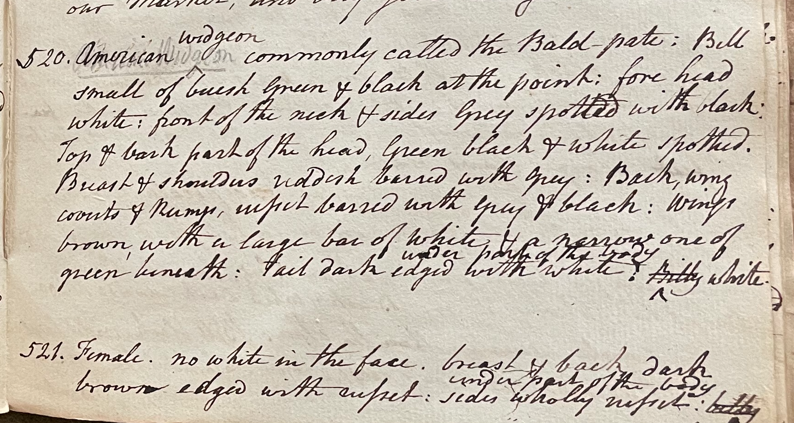 our market, and
widgeon
520. American commonly called the Bald-pate: Bill
small of blueish Green & black at the point: fore head
white: front of the neck & sides Grey spotted with black:
Top & back part of the head, Green black & white spotted.
Breast & shoulders reddish barred with grey: Back, wing
coverts & Rump, russet barred with Grey & black: Wings
brown, with a large bar of white, & a narrow one of
under parts of the body
green beneath: Tail dark edged with white: Belly white.
521. Female. no white in the face. breast & back dark
under part of the body
brown edged with russet: sides wholly russet: belly